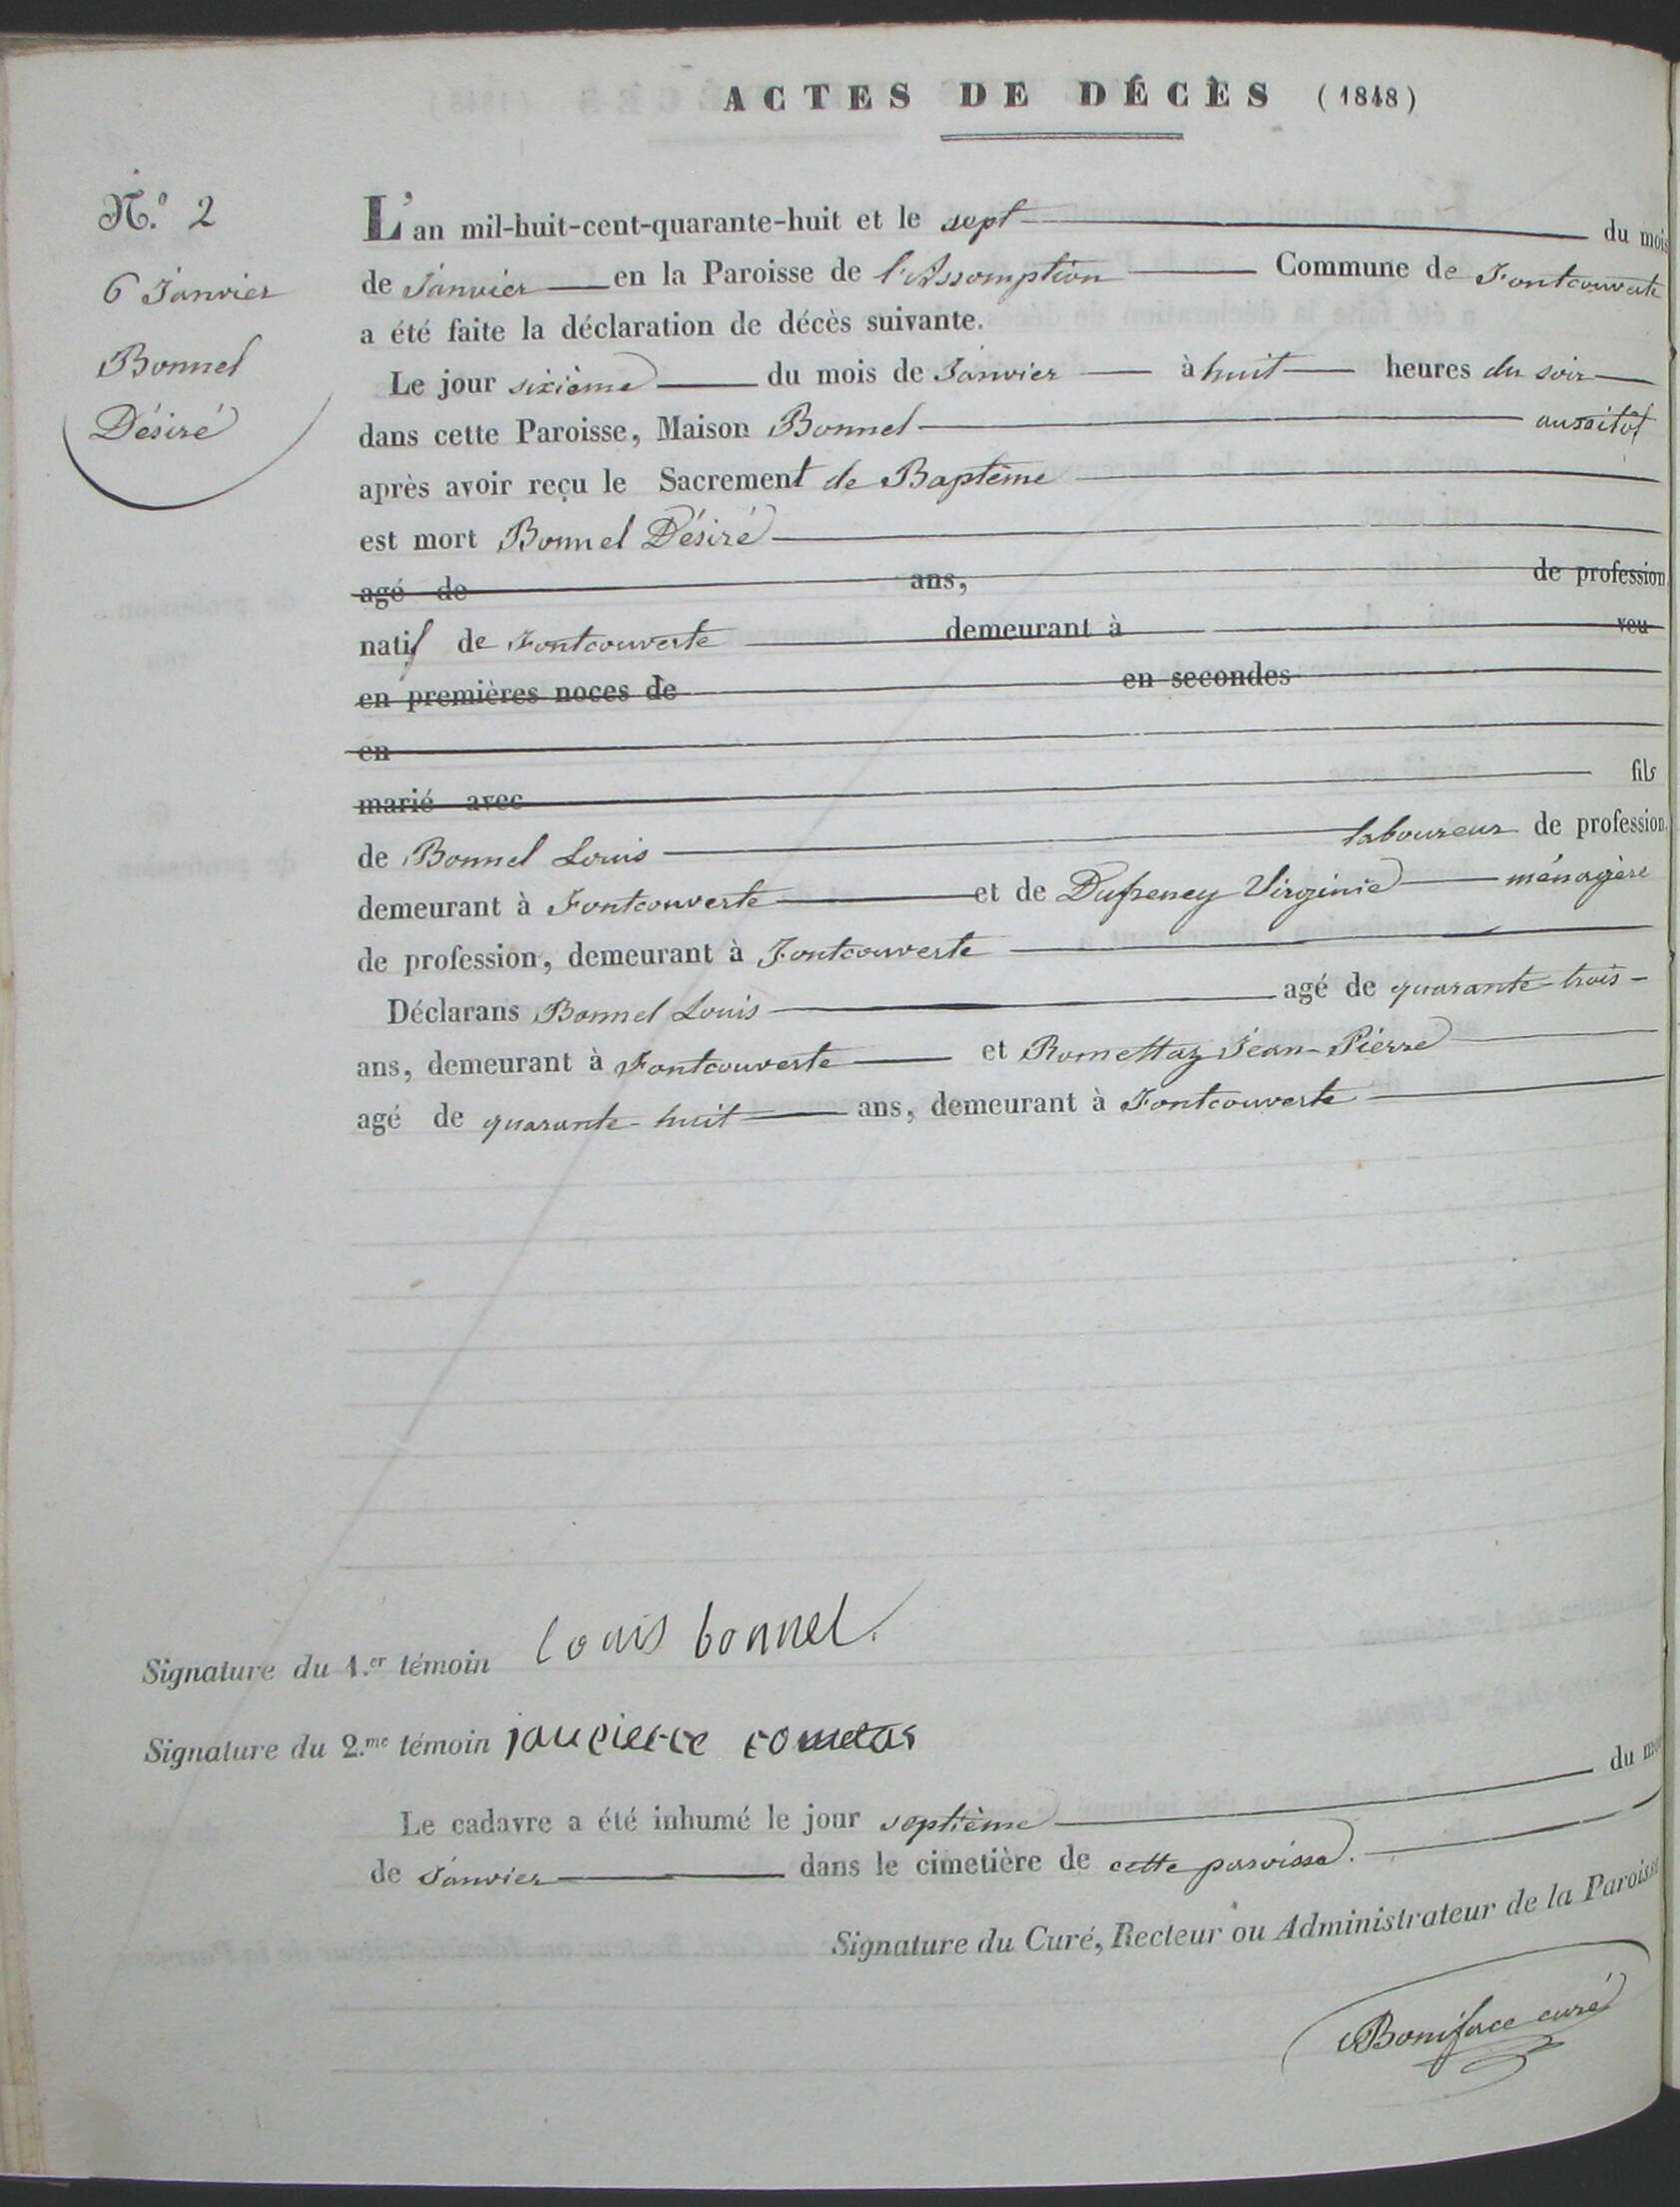 ACTES DE DÉCÈS (1848)
N.º 2
6 Janvier
Bonnel
Désiré
L'an mil-huit-cent-quarante-huit et le sept du mois
de Janvier en la Paroisse de l'Assomption Commune de Fontcouverte
a été faite la déclaration de décès suivante.
Le jour sixième du mois de Janvier à huit heures du soir
dans cette Paroisse, Maison Bonnel aussitôt
après avoir reçu le Sacrement de Baptême
est mort Bonnel Désiré
agé de ans, de profession
natif de Fontcouverte demeurant à veu
en premières noces de en secondes
en
marié avec fils
de Bonnel Louis laboureur de profession
demeurant à Fontcouverte et de Dufreney Virginie ménagère
de profession, demeurant à Fontcouverte
Déclarans Bonnel Louis agé de quarante-trois
ans, demeurant à Fontcouverte et Romettaz Jean-Pierre
agé de quarante-huit ans, demeurant à Fontcouverte
Signature du 1.er témoin louis bonnel.
Signature du 2.me témoin janpierre rometas
Le cadavre a été inhumé le jour septième du mo
de Janvier dans le cimetière de cette paroisse.
Signature du Curé, Recteur ou Administrateur de la Paroisse
Boniface curé